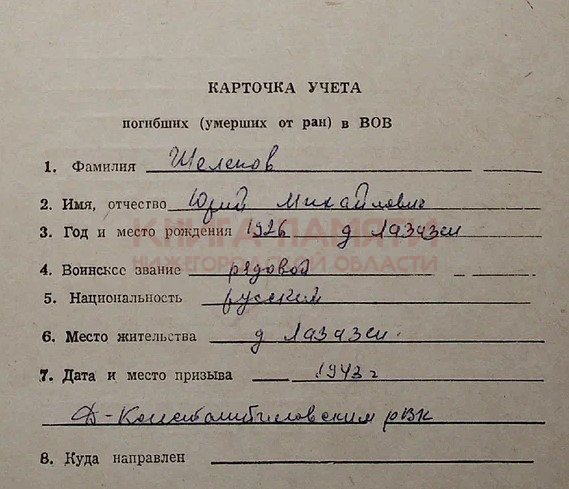 КАРТОЧКА УЧЕТА
погибших (умерших от ран) в ВОВ
1. Фамилия Шелепов
2. Имя, отчество Юрий Михайлович
3. Год и место рождения 1926 д Лазази
КНИГА ПАМЯТИ
НИЖЕГОРОДСКОЙ ОБЛАСТИ
4. Воинское звание рядовой
5. Национальность русский
6. Место жительства д Лазази.
7. Дата и место призыва 1943 г
Д-Константиновским РВК
8. Куда направлен